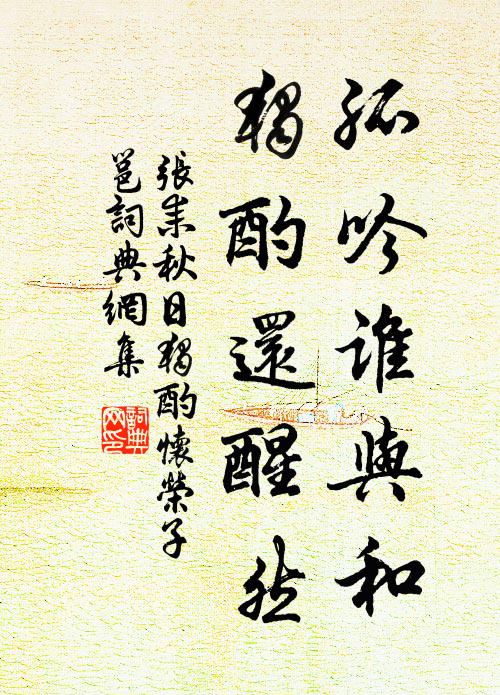 孤吟誰與和
獨酌還醒然
張耒秋日獨酌懷榮子
邕詞典網集
詞典网印